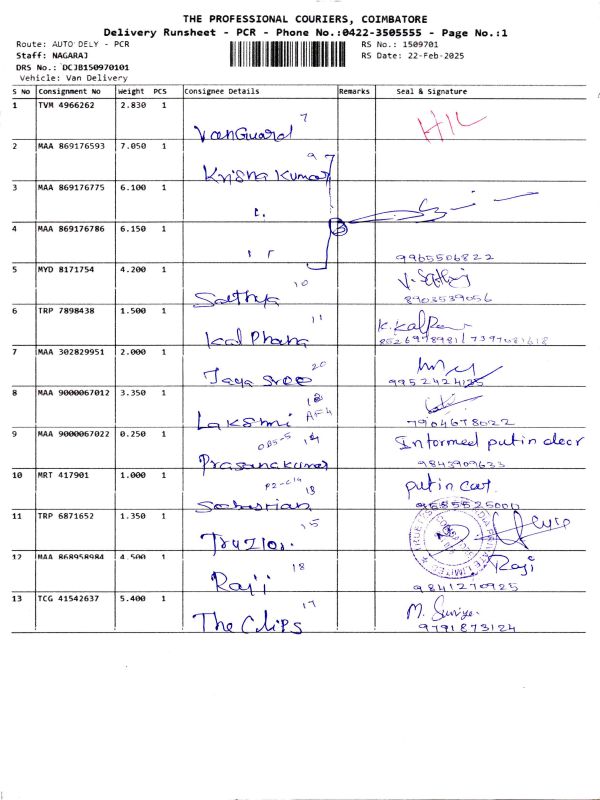 THE PROFESSIONAL COURIERS, COIMBATORE
Delivery Runsheet - PCR - Phone No.:0422-3505555 - Page No.:1
Route: AUTO DELY - PCR RS No.: 1509701
Staff: NAGARAJ RS Date: 22-Feb-2025
DRS No.: DCJB150970101
Vehicle: Van Delivery
S No Consignment No Weight PCS Consignee Details Remarks Seal & Signature
1 TVM 4966262 2.830 1
7
VanGuard
2 MAA 869176593 7.050 1
9
Krisna Kumar
3 MAA 869176775 6.100 1
4 MAA 869176786 6.150 1
9965506822
5 MYD 8171754 4.200 1
10
Sathya
8903539056
6 TRP 7898438 1.500 1
11
Kal Phana K.Kalpana
8526978981 / 7397681618
7 MAA 302829951 2.000 1
20
Jaya Sree
9952424125
8 MAA 9000067012 3.350 1
AF4
Lakshmi 7904678022
9 MAA 9000067022 0.250 1
14 Informed put in door
Prasanakumar 9843909633
10 MRT 417901 1.000 1
18 put in
Sebastian 9585525000
11 TRP 6871652 1.350 1
15
12 MAA 868958984 4.500 1
18 Raji
Raji 9841270925
13 TCG 41542637 5.400 1
17
The Clips 9791873124